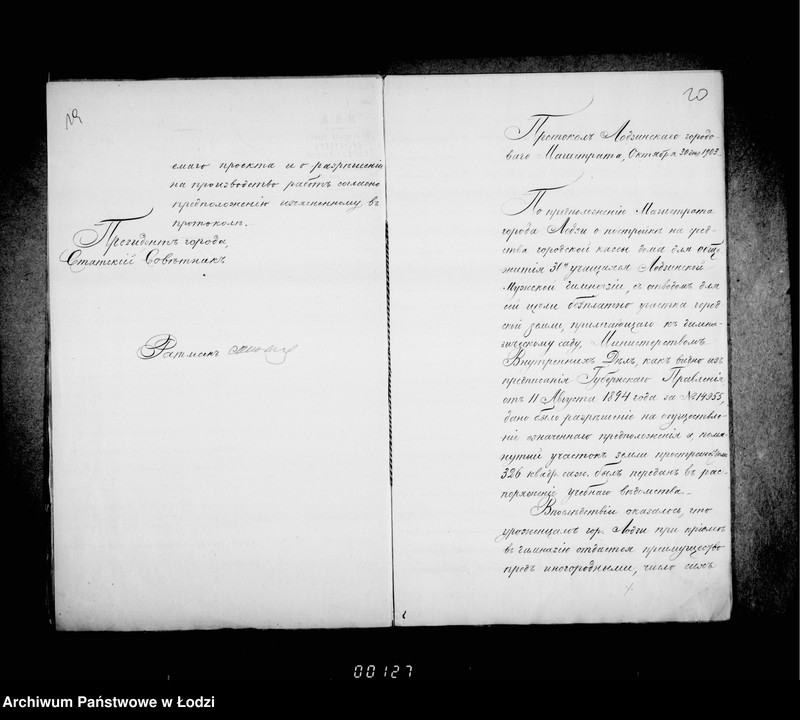 19
емаго проекта и о разрѣшеніи
на производство работъ согласно
предположенію изъясненному въ
протоколѣ.
Президентъ города,
Статскій Совѣтникъ
Ратманъ
20
Протоколъ Лодзинскаго городо-
ваго Магистрата, Октября 30 дня 1903
По предположенію Магистрата
города Лодзи о постройкѣ на сред-
ства городской кассы дома для обще-
житія учащихся Лодзинской
Мужской Гимназіи, съ отводомъ для
сей цѣли безплатно участка город-
ской земли, прилегающаго къ гимна-
зическому саду, Министерствомъ
Внутреннихъ Дѣлъ, какъ видно изъ
предписанія Губернскаго Правленія
отъ 11 Августа 1894 года за № 14955,
дано было разрѣшеніе на осуществле-
ніе означеннаго предположенія и помя-
нутый участокъ земли пространствомъ
326 квадр. саж. былъ переданъ въ рас-
поряженіе учебнаго вѣдомства.
Впослѣдствіи оказалось, что
уроженцамъ гор. Лодзи при пріемѣ
въ гимназію отдается преимущество
предъ иногородными, число сихъ
00127
Archiwum Państwowe w Łodzi